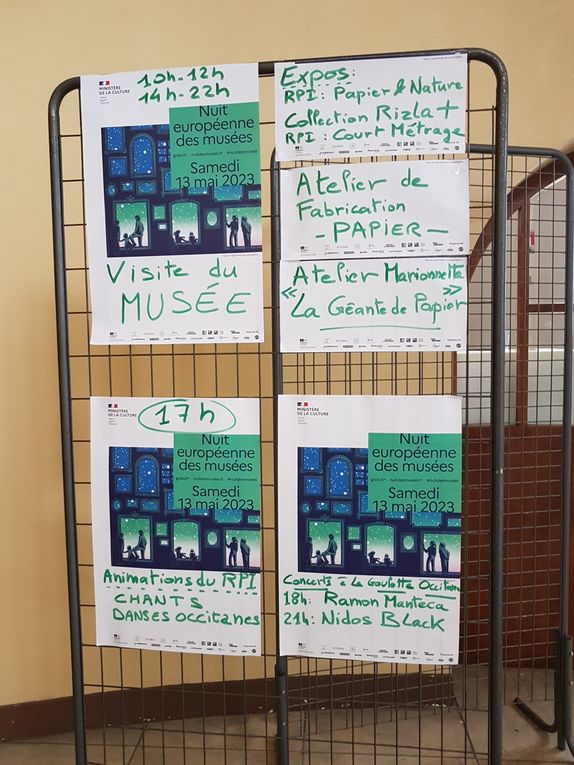 MINISTÈRE
DE LA CULTURE
10h-12h
14h-22h
Nuit
européenne
des musées
gratuit* nuitdesmusees.fr #nuitdesmusees
Samedi
13 mai 2023
Visite du
MUSÉE
Expos:
RPI: Papier & Nature
Collection Rizla+
RPI: Court Métrage
Atelier de
Fabrication
- PAPIER -
Atelier Marionnette
« La Géante de Papier »
MINISTÈRE
DE LA CULTURE
17h
Nuit
européenne
des musées
gratuit* nuitdesmusees.fr #nuitdesmusees
Samedi
13 mai 2023
Animations du RPI
CHANTS
DANSES OCCITANES
MINISTÈRE
DE LA CULTURE
Nuit
européenne
des musées
gratuit* nuitdesmusees.fr #nuitdesmusees
Samedi
13 mai 2023
Concerts à La Goulotte Occitane
18h: Ramon Manteca
21h: Nidos Black